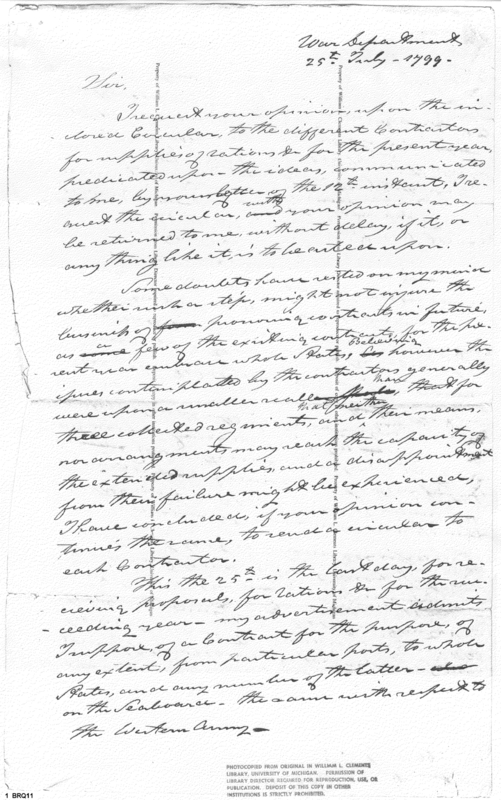 War Department
25th July - 1799 -
Sir,
I request your opinion, upon the in
closed Circular, to the different Contractors
for supplies of rations &c for the present year,
predicated upon the ideas, communicated
to me, by your letter of the 12th instant, I re-
quest the circular, with your opinion may
be returned to me, without delay, if it, or
any thing like it, is to be acted upon.
Some doubts have rested on my mind
whether such a step, might not injure the
business of procuring contracts in future,
as a few of the existing contracts, for the pre-
sent year embrace whole States, Believing however the
issues contemplated by the contractors generally
were upon a smaller scale than that for
three collected regiments, and that neither their means,
nor arrangements may reach the capacity of
the extended supplies, and a disappointment
from their failure might be experienced,
I have concluded, if your opinion con-
tinues the same, to send a circular to
each Contractor.
This the 25th is the last day, for re-
cieving proposals, for rations &c for the suc-
ceeding year - my advertisement admits
I suppose, of a Contract for the purpose, of
any extent, from particular posts, to whole
States, and any number of the latter
on the Seaboard - the same with respect to
the Western Army -
PHOTOCOPIED FROM ORIGINAL IN WILLIAM L. CLEMENTS
LIBRARY, UNIVERSITY OF MICHIGAN. PERMISSION OF
LIBRARY DIRECTOR REQUIRED FOR REPRODUCTION, USE, OR
PUBLICATION. DEPOSIT OF THIS COPY IN OTHER
INSTITUTIONS IS STRICTLY PROHIBITED.
1 BRQ11